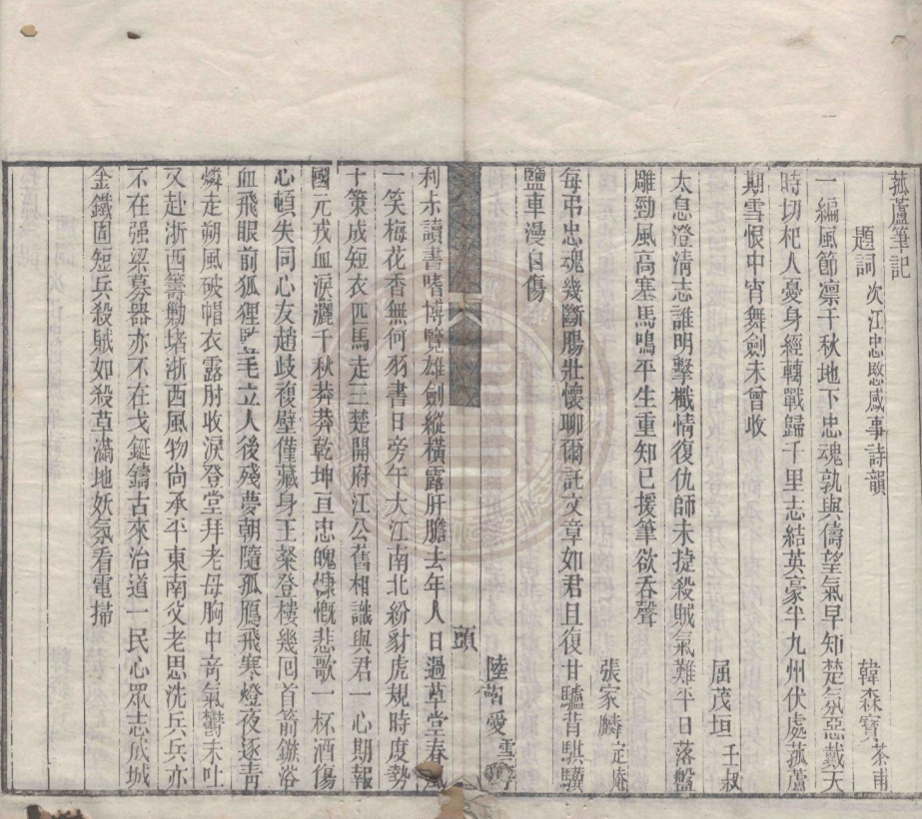 菰蘆筆記
題詞 次江忠愍感事詩韻 韓森寶 茶甫
一編風節凛千秋地下忠魂孰與儔望氣早知楚氛惡戴天
時切杞人憂身經轉戰歸千里志結英豪半九州伏處菰蘆
期雪恨中宵舞劍未曾收
屈茂垣 壬叔
太息澄清志誰明擊檝情復仇師未捷殺賊氣難平日落盤
雕勁風高塞馬鳴平生重知已援筆欲吞聲
張家麟 定庵
每弔忠魂幾斷腸壯懷聊爾託文章如君且復甘驢背騏驥
鹽車漫自傷
陸 愛 雪
頭
利未讀書嗜博覽雄劍縱橫露肝膽去年人日過草堂春風
一笑梅花香無何羽書日旁午大江南北紛豺虎規時度勢
十策成短衣匹馬走三楚開府江公舊相識與君一心期報
國元戎血淚灑千秋莽莽乾坤亘忠魄慷慨悲歌一杯酒傷
心頓失同心友趙歧複壁僅藏身王粲登樓幾回首箭鏃浴
血飛眼前狐狸毛立人後殘夢朝隨孤鴈飛寒燈夜逐靑
燐走朔風破帽衣露肘收淚登堂拜老母胸中奇氣鬱未吐
又赴浙西籌勦堵浙西風物尙承平東南父老思洗兵兵亦
不在强梁募器亦不在戈鋋鑄古來治道一民心眾志成城
金鐵固短兵殺賊如殺草滿地妖氛看電掃